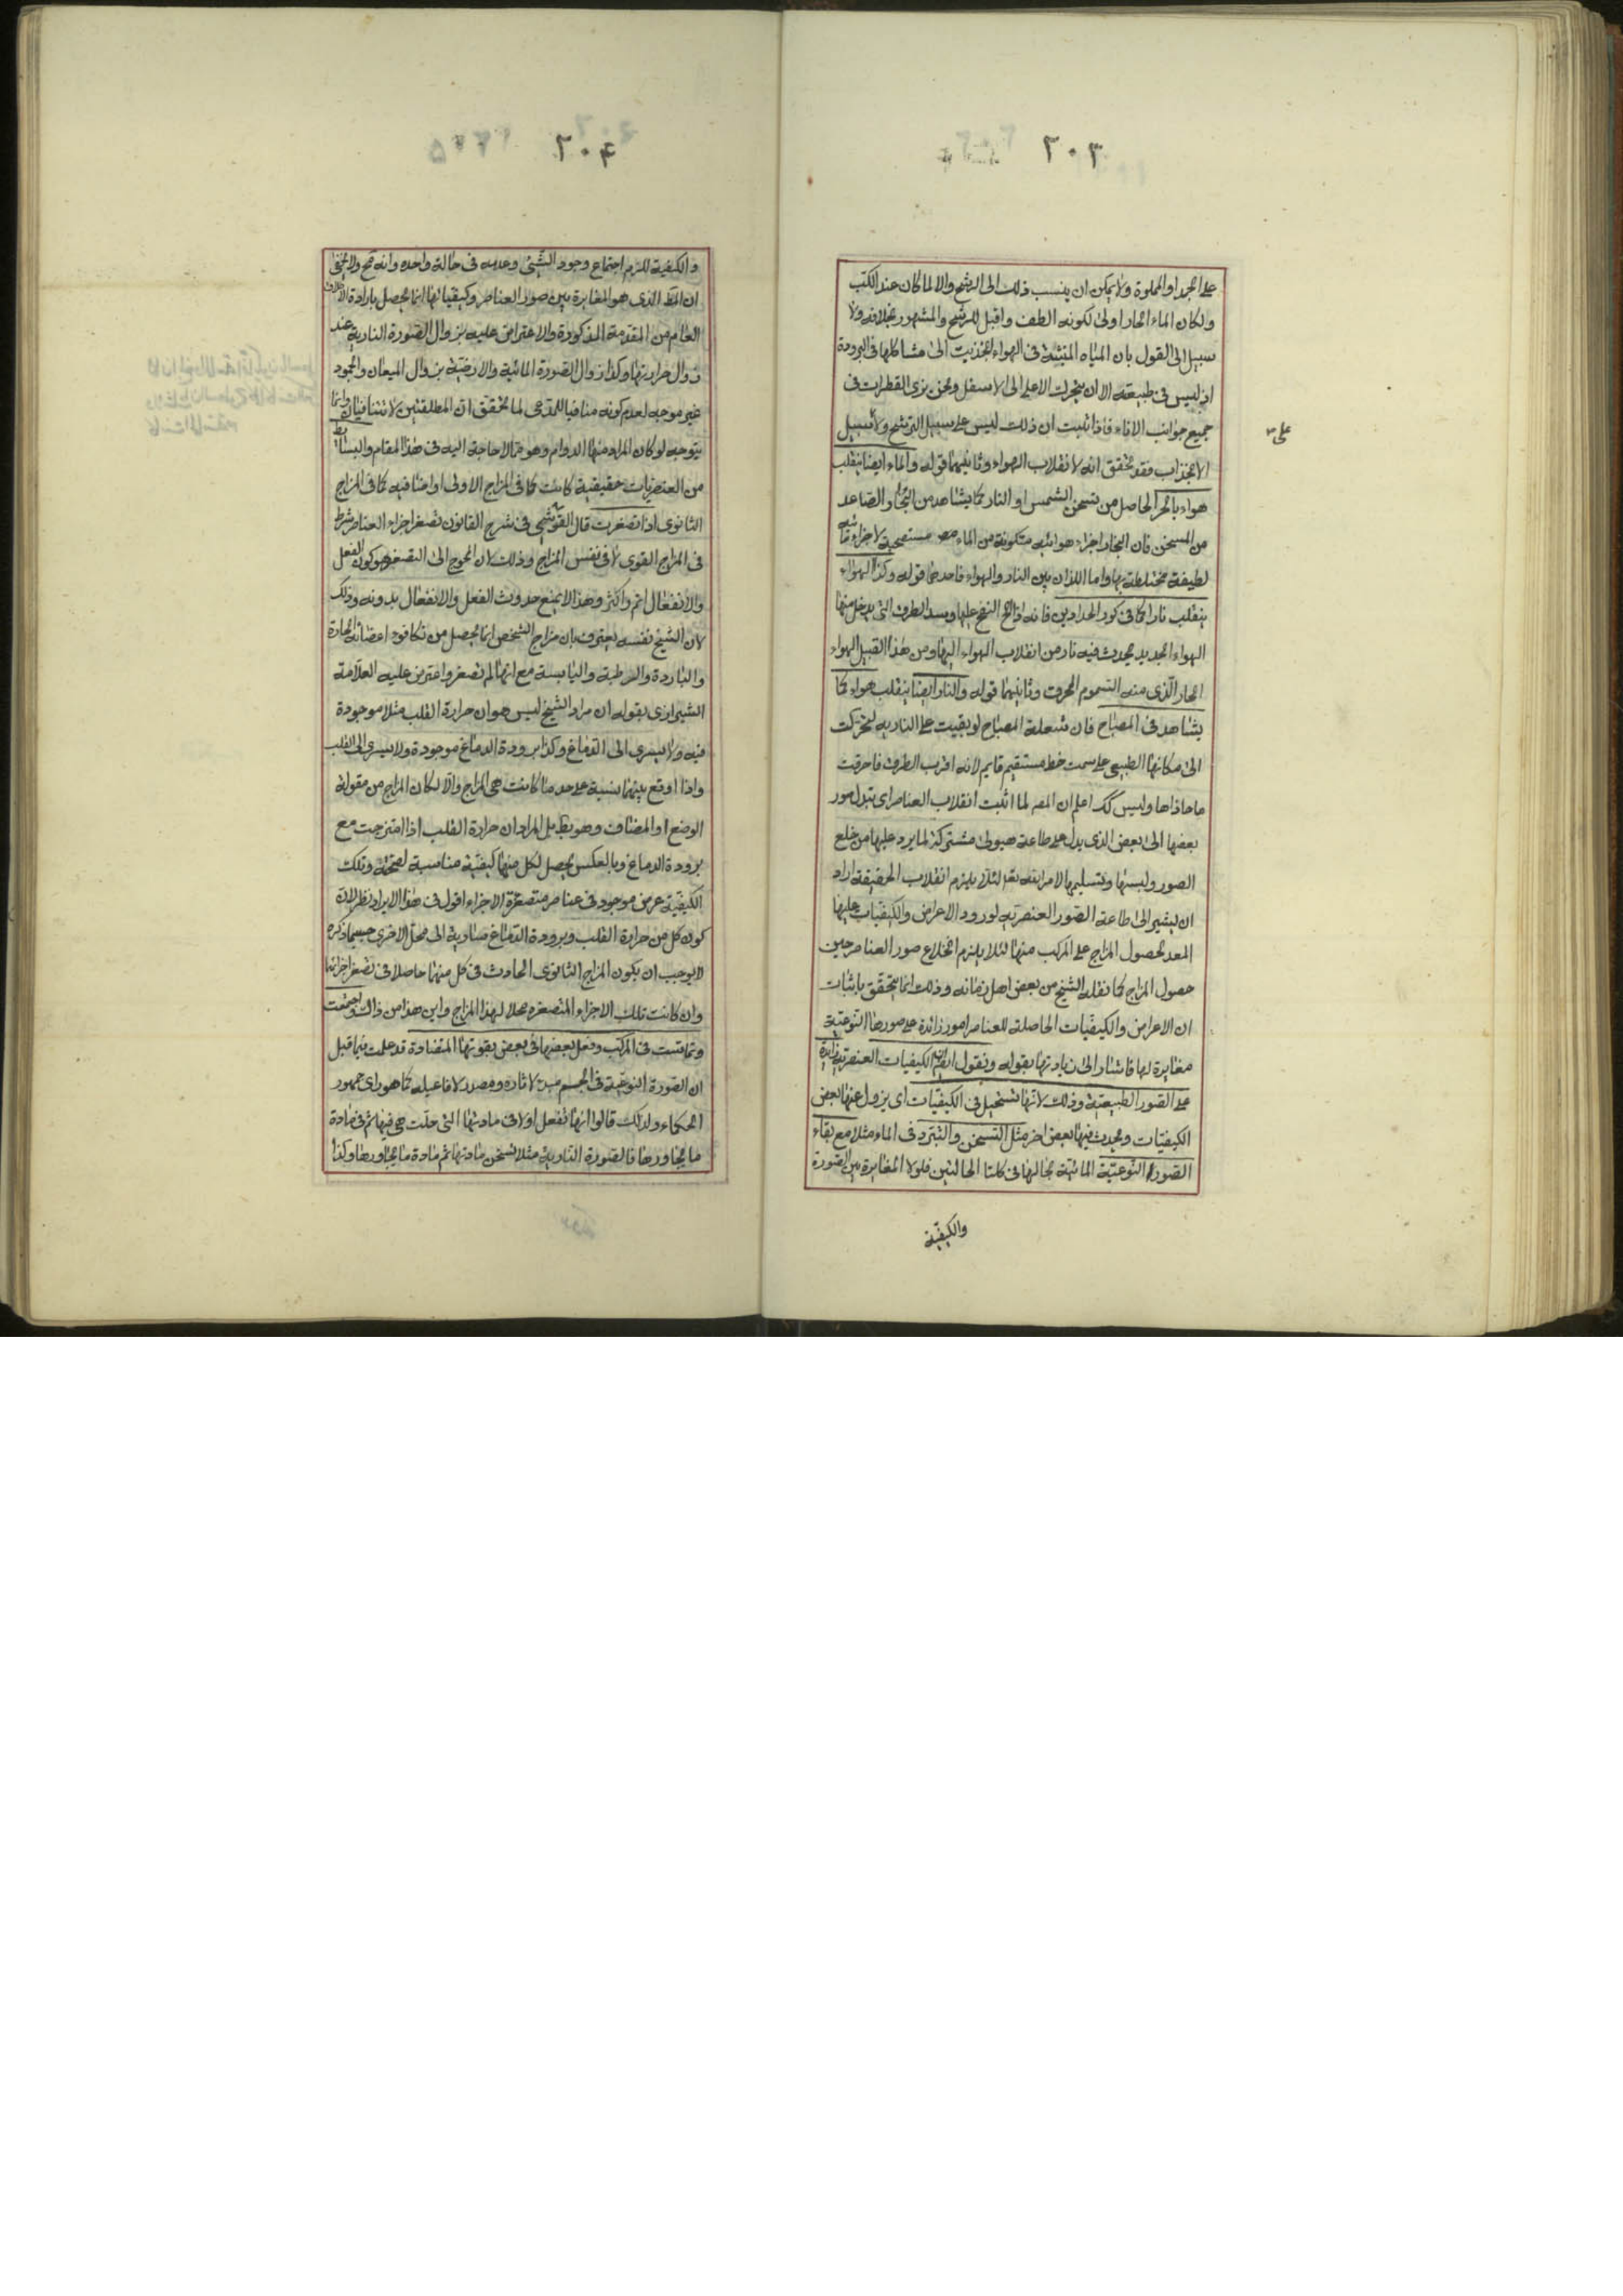 ٢٠٣
على الجمد او المملوة ولا يمكن ان ينسب ذلك الى الرشح والا لما كان عند الكتب
ولكان الماء الحار اولى لكونه الطف واقبل للرشح والمشهور بخلافه ولا
سبيل الى القول بان المياه المنبثة فى الهواء انجذبت الى مشاكلها فى البرودة
اذ ليس فى طبيعته الا ان يتحرك الاعلى الى الاسفل ونحن نرى القطرات فى
جميع جوانب الاناء فاذا ثبت ان ذلك ليس على سبيل الترشح ولا سبيل
على
الانجذاب فقد تحقق انه لانقلاب الهواء وثانيهما قوله والماء ايضا ينقلب
هواء بالحر الحاصل من تسخن الشمس او النار كما يشاهد من البخار الصاعد
من المسخن فان البخار اجزاء هوائيه متكونة من الماء مستصحبة لاجزاء مائيه
لطيفة مختلطة بها واما اللذان بين النار والهواء فاحدهما قوله وكذا الهواء
ينقلب نارا كما فى كور الحدادين فانه اذا الح النفخ عليها وسد الطرق التى يدخل منها
الهواء الجديد يحدث فيه نار من انقلاب الهواء اليها ومن هذا القبيل الهواء
الحار الذى منه السموم المحرق وثانيهما قوله والنار ايضا ينقلب هواء كما
يشاهد فى المصباح فان شعلة المصباح لو بقيت على الناريه لتحركت
الى مكانها الطبيعى على سمت خط مستقيم قايم لانه اقرب الطرق فاحرقت
ما حاذاها وليس كك اعلم ان المصـ لما اثبت انقلاب العناصر اى تبدل صور
بعضها الى بعض الذى يدل على طاعة هيولى مشتركة لما يرد عليها من خلع
الصور ولبسها وتسليمها الامر لئلا يلزم انقلاب الحقيقة اراد
ان يشير الى اطاعة الصور العنصريه لورود الاعراض والكيفيات عليها
المعد لحصول المزاج على المركب منها لئلا يلزم انخلاع صور العناصر حين
حصول المزاج كما نقله الشيخ من بعض اهل زمانه وذلك انما يتحقق باثبات
ان الاعراض والكيفيات الحاصلة للعناصر امور زائدة على صورها النوعية
مغايرة لها فاشار الى زيادتها بقوله ونقول ايضا الكيفيات العنصرية زايدة
على الصور الطبيعية وذلك لانها تستحيل فى الكيفيات اى يزول عنها بعض
الكيفيات ويحدث فيها بعض اخر مثل التسخن والتبرد فى الماء مثلا مع بقاء
الصورة النوعية المائية بحالها فى كلتا الحالتين فلولا المغايرة بين الصورة
والكيفية
٢٠٤
والكيفية للزم اجتماع وجود الشئ وعدمه فى حالة واحده وانه مح ولا يخفى
ان المط الذى هو المغايرة بين صور العناصر وكيفياتها انما يحصل بارادة الاطلاق
العام من المقدمة المذكورة والاعتراض عليه بزوال الصورة النارية عند
زوال حرارتها وكذا زوال الصورة المائية والارضية بزوال الميعان والجمود
غير موجه لعدم كونه منافيا للمدعى لما تحقق ان المطلقتين لا تتنافيان وانما
يتوجه لو كان المراد منها الدوام وهو مما لا حاجة اليه فى هذا المقام والبسائط
من العنصريات حقيقية كانت كما فى المزاج الاولى او اضافيه كما فى المزاج
الثانوى اذا تصغرت قال القوشجى فى شرح القانون تصغر اجزاء العناصر شرط
فى المزاج القوى لا فى نفس المزاج وذلك لان المحوج الى التصغر هو كون الفعل
والانفعال اتم واكثر وهذا لا يمنع حدوث الفعل والانفعال بدونه وذلك
لان الشيخ نفسه يعترف بان مزاج الشخص انما يحصل من تكافوء اعضائه الحارة
والباردة والرطبة واليابسة مع انها لم تصغر واعترض عليه العلامة
الشيرازى بقوله ان مراد الشيخ ليس هو ان حرارة القلب مثلا موجودة
فيه ولا يسرى الى الدماغ وكذا برودة الدماغ موجودة ولا يسرى الى القلب
واذا اوقع بينهما نسبة على حد ما كانت هى المزاج والا لكان المزاج من مقولة
الوضع او المضاف وهو بط بل المراد ان حرارة القلب اذا امتزجت مع
برودة الدماغ وبالعكس يحصل لكل منها كيفية مناسبة لصحته وتلك
الكيفية عرض موجود فى عناصر متصغرة الاجزاء اقول فى هذا الايراد نظر لان
كون كل من حرارة القلب وبرودة الدماغ ساوية الى محل الاخرى حسبما ذكره
لا يوجب ان يكون المزاج الثانوى الحادث فى كل منها حاصلا فى تصغر اجزائها
وان كانت تلك الاجزاء المتصغره محلا لهذا المزاج واين هذا من ذاك واجتمعت
وتماست فى المركب وفعل بعضها فى بعض بقوتها المتضادة قد علمت فيما قبل
ان الصورة النوعية فى الجسم مبدء لاثاره ومصدر لافاعيله كما هو راى جمهور
الحكماء ولذلك قالوا انها تفعل اولا فى مادتها التى حلت هى فيها ثم فى مادة
ما يجاورها فالصورة النارية مثلا تسخن مادتها ثم مادة ما يجاورها وكذا